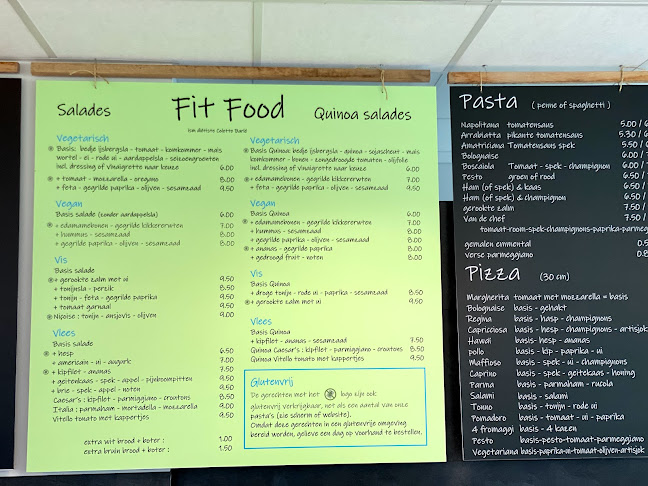 Fit Food
(ism diëtiste Colette Baré)
Salades
Vegetarisch
Basis: bedje ijsbergsla - tomaat - komkommer - mais
wortel - ei - rode ui - aardappelsla - seizoengroenten
incl. dressing of vinaigrette naar keuze 6.00
+ tomaat - mozzarella - oregano 8.00
+ feta - gegrilde paprika - olijven - sesamzaad 9.50
Vegan
Basis salade (zonder aardappelsla) 6.00
+ edamamebonen - gegrilde kikkererwten 7.00
+ hummus - sesamzaad 8.00
+ gegrilde paprika - olijven - sesamzaad 8.00
Vis
Basis salade
+ gerookte zalm met ui 9.50
+ tonijnsla - perzik 8.50
+ tonijn - feta - gegrilde paprika 9.50
+ tomaat garnaal 9.50
Niçoise: tonijn - ansjovis - olijven 9.00
Vlees
Basis salade
+ hesp 6.50
+ americain - ui - augurk 7.00
+ kipfilet - ananas 7.50
+ geitenkaas - spek - appel - pijnboompitten 9.50
+ brie - spek - appel - noten 9.50
Caesar's: kipfilet - parmiggiano - croutons 8.50
Italia: parmaham - mortadella - mozzarella 9.00
Vitello tomato met kappertjes 9.50
extra wit brood + boter: 1.00
extra bruin brood + boter: 1.50
Quinoa salades
Vegetarisch
Basis Quinoa: bedje ijsbergsla - quinoa - sojascheut - mais
komkommer - bonen - zongedroogde tomaten - olijfolie
incl. dressing of Vinaigrette naar keuze 6.00
+ edamamebonen - gegrilde kikkererwten 7.00
+ feta - gegrilde paprika - olijven - sesamzaad 9.50
Vegan
Basis Quinoa 6.00
+ edamamebonen - gegrilde kikkererwten 7.00
+ hummus - sesamzaad 8.00
+ gegrilde paprika - olijven - sesamzaad 8.00
+ ananas - gegrilde paprika 8.00
+ gedroogd fruit - noten 8.00
Vis
Basis Quinoa
+ droge tonijn - rode ui - paprika - sesamzaad 8.50
+ gerookte zalm met ui 9.50
Vlees
Basis Quinoa
+ kipfilet - ananas - sesamzaad 7.50
Quinoa Caesar's: kipfilet - parmiggiano - croutons 8.50
Quinoa Vitello tomato met kappertjes 9.50
Glutenvrij
De gerechten met het logo zijn ook
glutenvrij verkrijgbaar, net als een aantal van onze
pasta's (zie scherm of website).
Omdat deze gerechten in een glutenvrije omgeving
bereid worden, gelieve een dag op voorhand te bestellen.
Pasta (penne of spaghetti)
Napolitana tomatensaus 5.00 /
Arrabiatta pikante tomatensaus 5.30 / 6
Amatriciana Tomatensaus spek 5.50 /
Bolognaise 6.00 /
Boscaiola Tomaat - spek - champignon 6.00 /
Pesto groen of rood 6.50 /
Ham (of spek) & kaas 6.50 /
Ham (of spek) & champignon 6.50 /
gerookte zalm 7.50 /
Van de chef 7.50 /
tomaat-room-spek-champignons-paprika-parmeg
gemalen emmental 0.5
verse parmeggiano 0.8
Pizza (30 cm)
Margherita tomaat met mozzarella = basis
Bolognaise basis - gehakt
Regina basis - hesp - champignons
Capricciosa basis - hesp - champignons - artisjok
Hawai basis - hesp - ananas
pollo basis - kip - paprika - ui
Maffioso basis - spek - ui - champignons
Caprino basis - spek - geitekaas - honing
Parma basis - parmaham - rucola
Salami basis - salami
Tonno basis - tonijn - rode ui
Pomodero basis - tomaat - ui - paprika
4 fromaggi basis - 4 kazen
Pesto basis-pesto-tomaat-parmeggiano
Vegetariana basis-paprika-ui-tomaat-olijven-artisjok